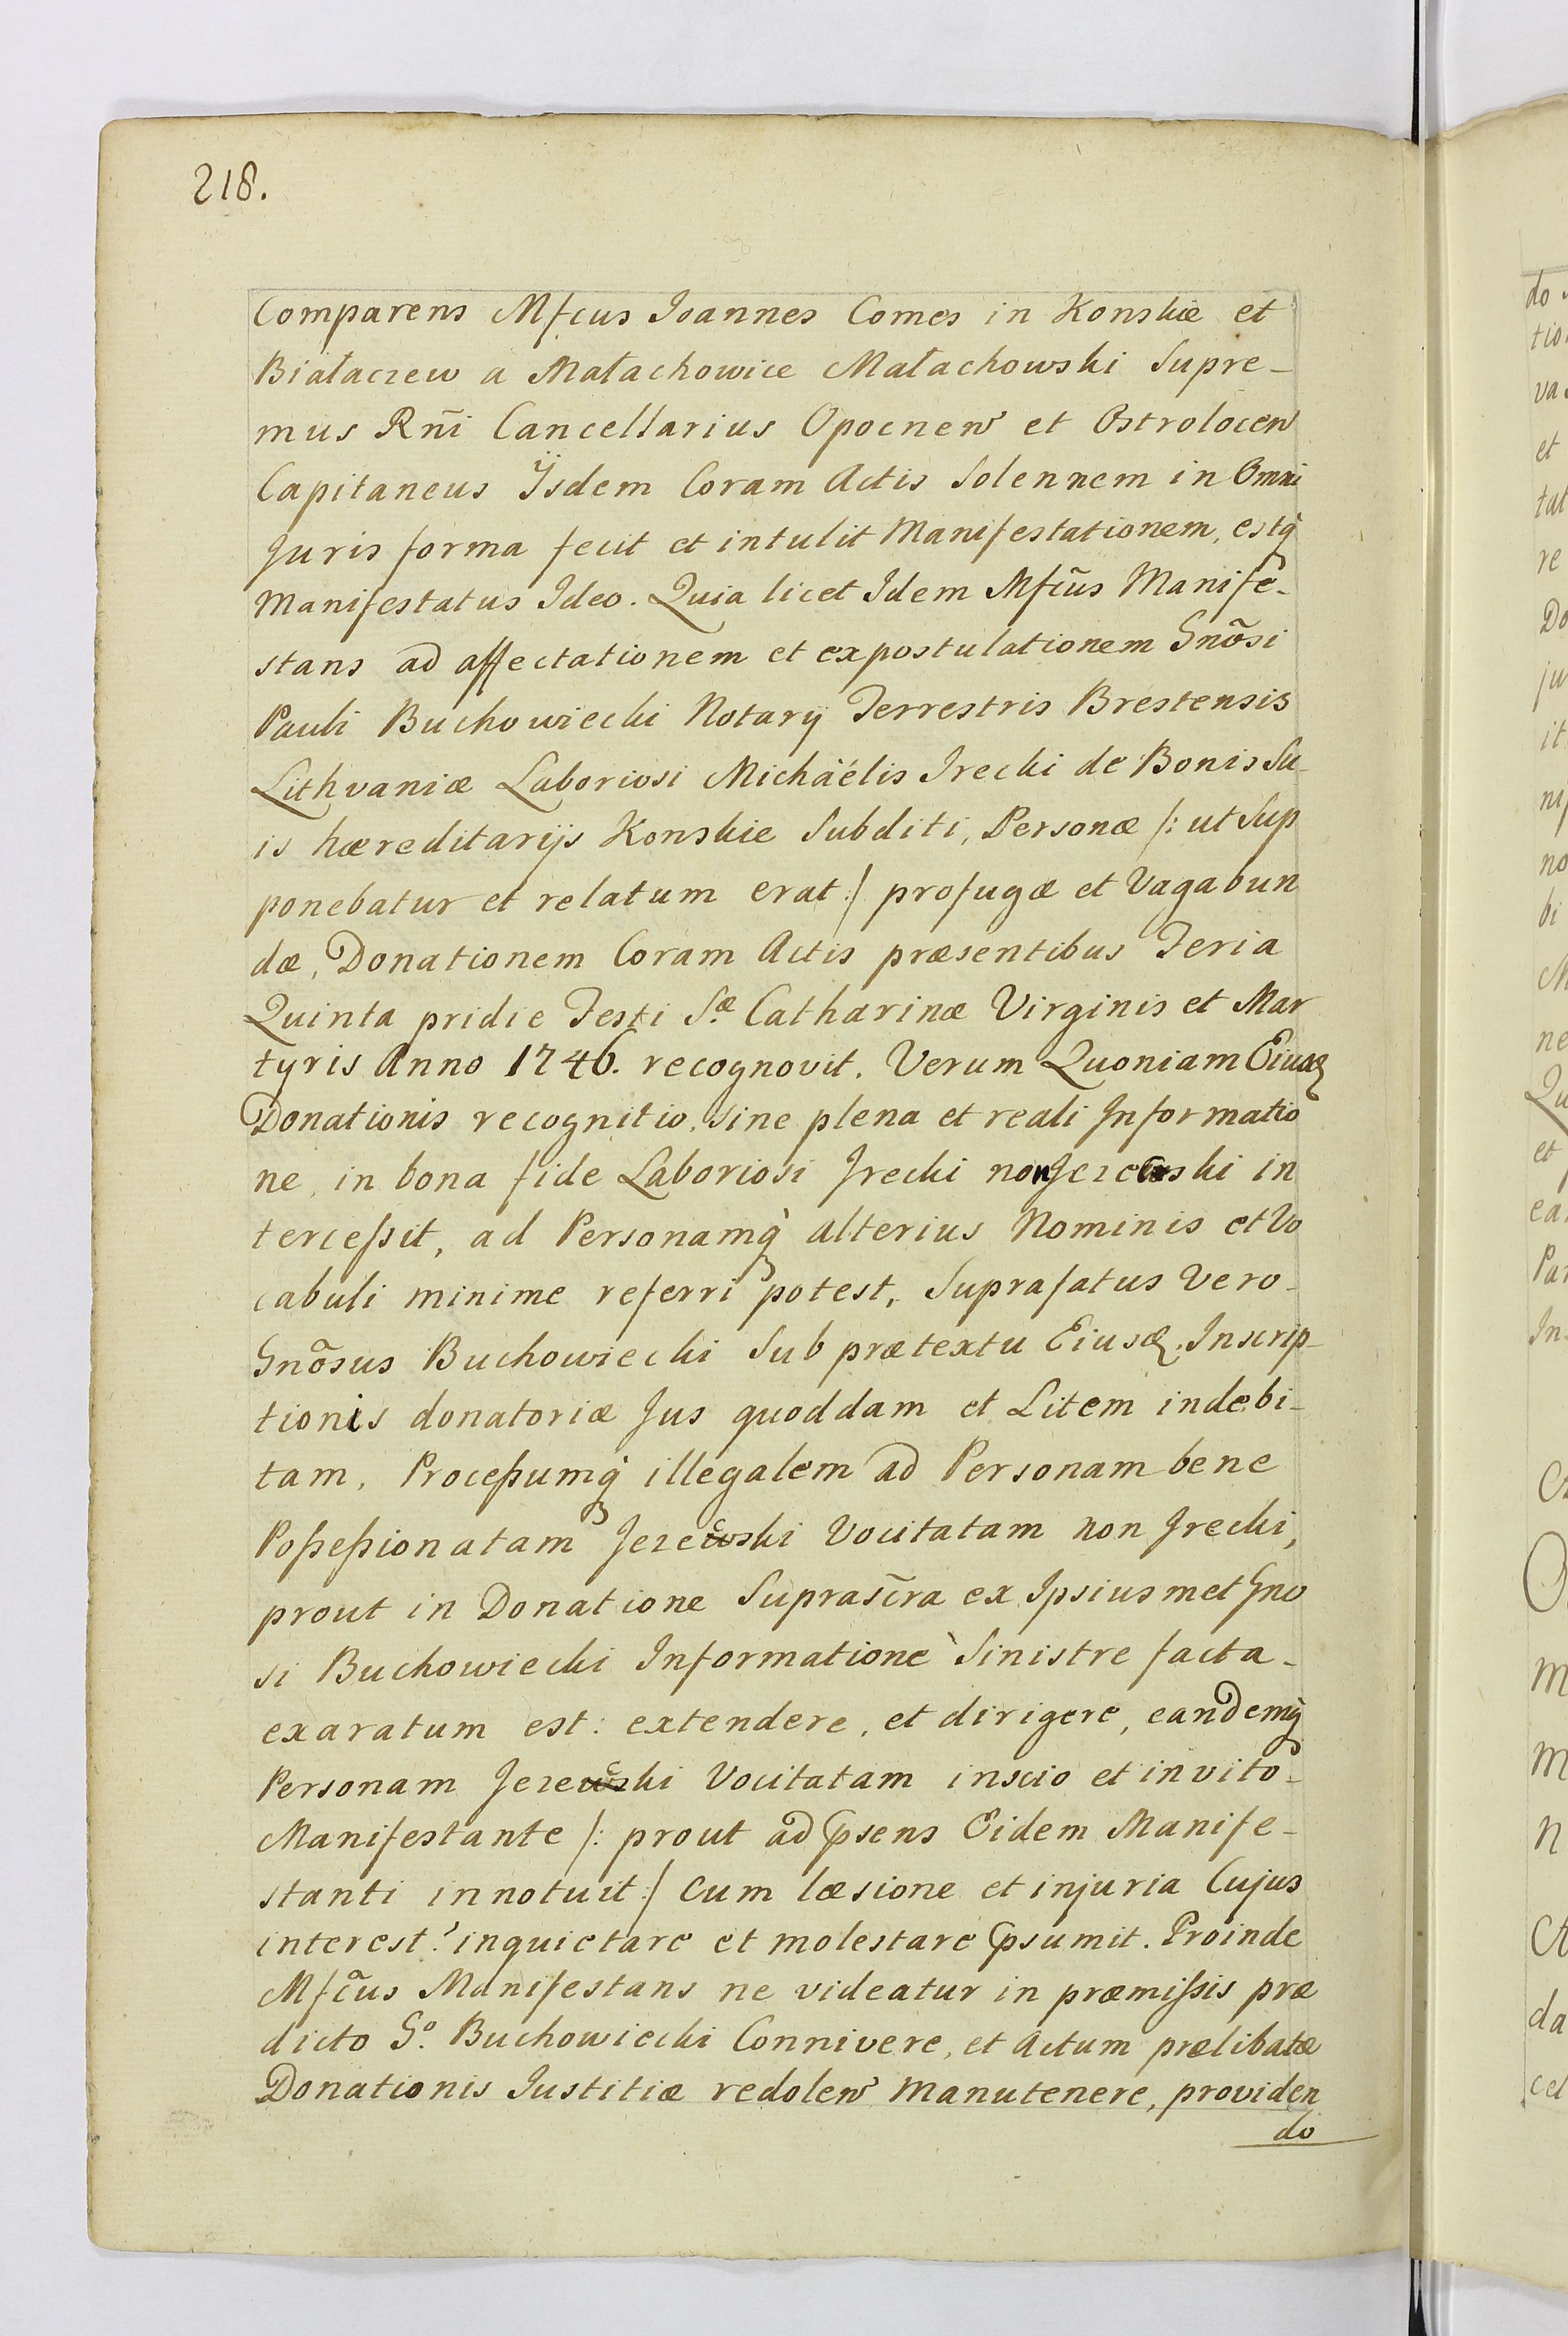 218.
Comparens Mfcus Joannes Comes in Konskie et
Białaczew a Małachowice Małachowski Supre-
mus Rñi Cancellarius Opocnen et Ostrolocen
Capitaneus Ÿsdem Coram Actis Solennem in Omni
Juris forma fecit et intulit Manifestationem, estq
Manifestatus Ideo. Quia licet Idem Mfcũs Manife-
stans ad affectationem et expostulationem Gnõsi
Pauli Buchowiecki Notarij Terrestris Brestensis
Lithvaniæ Laboriosi Michäélis Irecki de Bonis Su-
is hæreditarijs Konskie Subditi, Personæ /: ut Sup
ponebatur et relatum erat :/ profugæ et Vagabun
dæ, Donationem Coram Actis præsentibus Feria
Quinta pridie Festi S.æ Catharinæ Virginis et Mar
tyris Anno 1746. recognovit. Verum Quoniam Eiusd
Donationis recognitio, sine plena et reali Informatio
ne, in bona fide Laboriosi Irecki non in
tercessit, ad Personamq alterius Nominis et Vo
cabuli minime referri potest, Suprafatus Vero-
Gnõsus Buchowiecki Sub prætextu Eiusd. Inscrip-
tionis donatoriæ Jus quoddam et Litem indebi-
tam, Processumq illegalem ad Personam bene
Possessionatam Vocitatam non Irecki,
prout in Donatione Suprascr̃a ex Ipsiusmet Gno
si Buchowiecki Informatione Sinistre facta-
exaratum est: extendere, et dirigere, eandemq
Personam Vocitatam inscio et invito-
Manifestante /: prout ad psens Eidem Manife-
stanti innotuit :/ Cum læsione et injuria Cujus
interest: inquietare et molestare psumit. Proinde
Mfcũs Manifestans ne videatur in præmissis præ
dicto G.o Buchowiecki Connivere, et Actum prælibatæ
Donationis Iustitiæ redolen Manutenere, providen
do